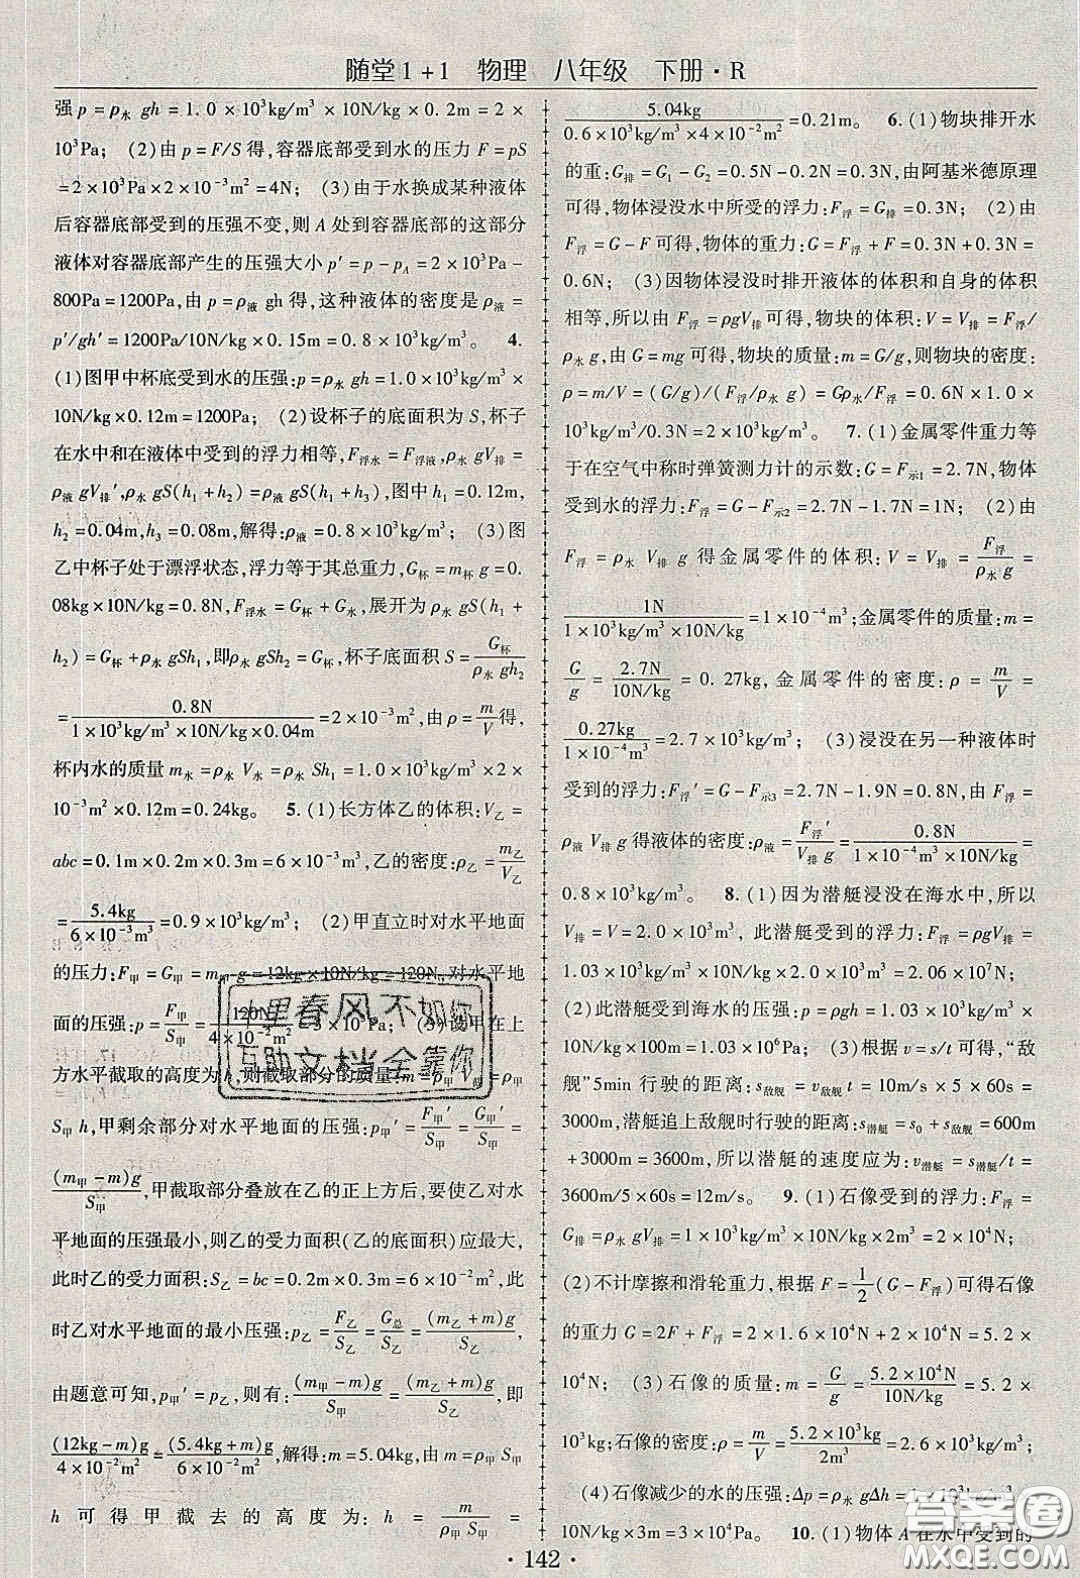 随堂1+1 物理 八年级 下册·R
强p=ρ水 gh=1.0×10³kg/m³×10N/kg×0.2m=2×
10³Pa; (2)由p=F/S得,容器底部受到水的压力F=pS
=2×10³Pa×2×10⁻³m²=4N; (3)由于水换成某种液体
后容器底部受到的压强不变,则A处到容器底部的这部分
液体对容器底部产生的压强大小p′=p-pA=2×10³Pa-
800Pa=1200Pa,由p=ρ液 gh得,这种液体的密度是ρ液=
p′/gh′=1200Pa/10N/kg×0.15m=0.8×10³kg/m³。 4.
(1)图甲中杯底受到水的压强:p=ρ水 gh=1.0×10³kg/m³×
10N/kg×0.12m=1200Pa; (2)设杯子的底面积为S,杯子
在水中和在液体中受到的浮力相等,F浮水=F浮液,ρ水 gV排=
ρ液 gV排′,ρ水 gS(h₁+h₂)=ρ液 gS(h₁+h₃),图中h₁=0.12m,
h₂=0.04m,h₃=0.08m,解得:ρ液=0.8×10³kg/m³; (3)图
乙中杯子处于漂浮状态,浮力等于其总重力,G杯=m杯 g=0.
08kg×10N/kg=0.8N,F浮水=G杯+G水,展开为ρ水 gS(h₁+
h₂)=G杯+ρ水 gSh₁,即ρ水 gSh₂=G杯,杯子底面积S=G杯/ρ水 gh₂
=0.8N/1×10³kg/m³×10N/kg×0.04m=2×10⁻³m²,由ρ=m/V得,
杯内水的质量m水=ρ水 V水=ρ水 Sh₁=1.0×10³kg/m³×2×
10⁻³m²×0.12m=0.24kg。 5.(1)长方体乙的体积:V乙=
abc=0.1m×0.2m×0.3m=6×10⁻³m³,乙的密度:ρ乙=m乙/V乙
=5.4kg/6×10⁻³m³=0.9×10³kg/m³; (2)甲直立时对水平地面
的压力:F甲=G甲=m甲 g=12kg×10N/kg=120N,对水平地
面的压强:p=F甲/S甲=120N/4×10⁻²m²=3×10³Pa; (3)设甲在上
方水平截取的高度为h,则截取部分的质量:m=ρ甲
S甲 h,甲剩余部分对水平地面的压强:p甲′=F甲′/S甲=G甲′/S甲=
(m甲-m)g/S甲,甲截取部分叠放在乙的正上方后,要使乙对水
平地面的压强最小,则乙的受力面积(乙的底面积)应最大,
此时乙的受力面积:S乙=bc=0.2m×0.3m=6×10⁻²m²,此
时乙对水平地面的最小压强:p乙=F乙/S乙=G总/S乙=(m乙+m)g/S乙,
由题意可知,p甲′=p乙,则有:(m甲-m)g/S甲=(m乙+m)g/S乙,即
(12kg-m)g/4×10⁻²m²=(5.4kg+m)g/6×10⁻²m²,解得:m=5.04kg,由m=ρ甲 S甲
h可得甲截去的高度为:h=m/ρ甲 S甲=
5.04kg/0.6×10³kg/m³×4×10⁻²m²=0.21m。 6.(1)物块排开水
的重:G排=G₁-G₂=0.5N-0.2N=0.3N,由阿基米德原理
可得,物体浸没水中所受的浮力:F浮=G排=0.3N; (2)由
F浮=G-F可得,物体的重力:G=F浮+F=0.3N+0.3N=
0.6N; (3)因物体浸没时排开液体的体积和自身的体积
相等,所以由F浮=ρgV排可得,物块的体积:V=V排=F浮/
ρ水 g,由G=mg可得,物块的质量:m=G/g,则物块的密度:
ρ=m/V=(G/g)/(F浮/ρ水 g)=Gρ水/F浮=0.6N×1.0×
10³kg/m³/0.3N=2×10³kg/m³。 7.(1)金属零件重力等
于在空气中称时弹簧测力计的示数:G=F示1=2.7N,物体
受到水的浮力:F浮=G-F示2=2.7N-1.7N=1N; (2)由
F浮=ρ水 V排 g得金属零件的体积:V=V排=F浮/ρ水 g=
1N/1×10³kg/m³×10N/kg=1×10⁻⁴m³;金属零件的质量:m=
G/g=2.7N/10N/kg=0.27kg,金属零件的密度:ρ=m/V=
0.27kg/1×10⁻⁴m³=2.7×10³kg/m³; (3)浸没在另一种液体时
受到的浮力:F浮′=G-F示3=2.7N-1.9N=0.8N,由F浮=
ρ液 V排 g得液体的密度:ρ液=F浮′/V排 g=0.8N/1×10⁻⁴m³×10N/kg=
0.8×10³kg/m³。 8.(1)因为潜艇浸没在海水中,所以
V排=V=2.0×10³m³,此潜艇受到的浮力:F浮=ρgV排=
1.03×10³kg/m³×10N/kg×2.0×10³m³=2.06×10⁷N;
(2)此潜艇受到海水的压强:p=ρgh=1.03×10³kg/m³×
10N/kg×100m=1.03×10⁶Pa; (3)根据v=s/t可得,“敌
舰”5min行驶的距离:s敌舰=v敌舰 t=10m/s×5×60s=
3000m,潜艇追上敌舰时行驶的距离:s潜艇=s₀+s敌舰=600m
+3000m=3600m,所以潜艇的速度应为:v潜艇=s潜艇/t=
3600m/5×60s=12m/s。 9.(1)石像受到的浮力:F浮=
G排=ρ水 gV排=1×10³kg/m³×10N/kg×2m³=2×10⁴N;
(2)不计摩擦和滑轮重力,根据F=1/2(G-F浮)可得石像
的重力G=2F+F浮=2×1.6×10⁴N+2×10⁴N=5.2×
10⁴N; (3)石像的质量:m=G/g=5.2×10⁴N/10N/kg=5.2×
10³kg;石像的密度:ρ=m/V=5.2×10³kg/2m³=2.6×10³kg/m³;
(4)石像减少的水的压强:Δp=ρ水 gΔh=1×10³kg/m³×
10N/kg×3m=3×10⁴Pa。 10.(1)物体A在水中受到的
十里春风不如你
互助文档全靠你
答案圈
MXQE.COM
·142·